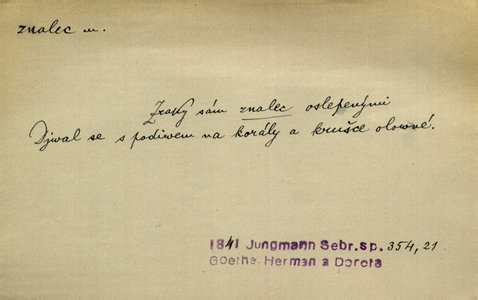 znalec m.
Zraky sám znalec oslepenými
Djwal se s podiwem na korály a krušce olowné.
1841 Jungmann Sebr.sp. 354, 21.
Goethe. Herman a Dorota